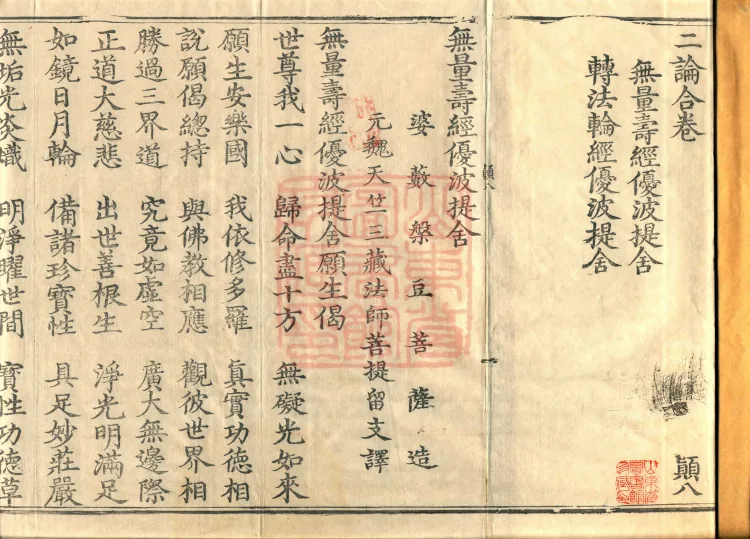 二論合卷
無量壽經優波提舍
轉法輪經優波提舍
顛八
顛八
無量壽經優波提舍
婆藪槃豆菩薩造
元魏天竺三藏法師菩提留支譯
無量壽經優波提舍願生偈
世尊我一心 歸命盡十方 無礙光如來
願生安樂國 我依修多羅 真實功德相
說願偈總持 與佛教相應 觀彼世界相
勝過三界道 究竟如虛空 廣大無邊際
正道大慈悲 出世善根生 淨光明滿足
如鏡日月輪 備諸珍寶性 具足妙莊嚴
無垢光炎熾 明淨曜世間 寶性功德草